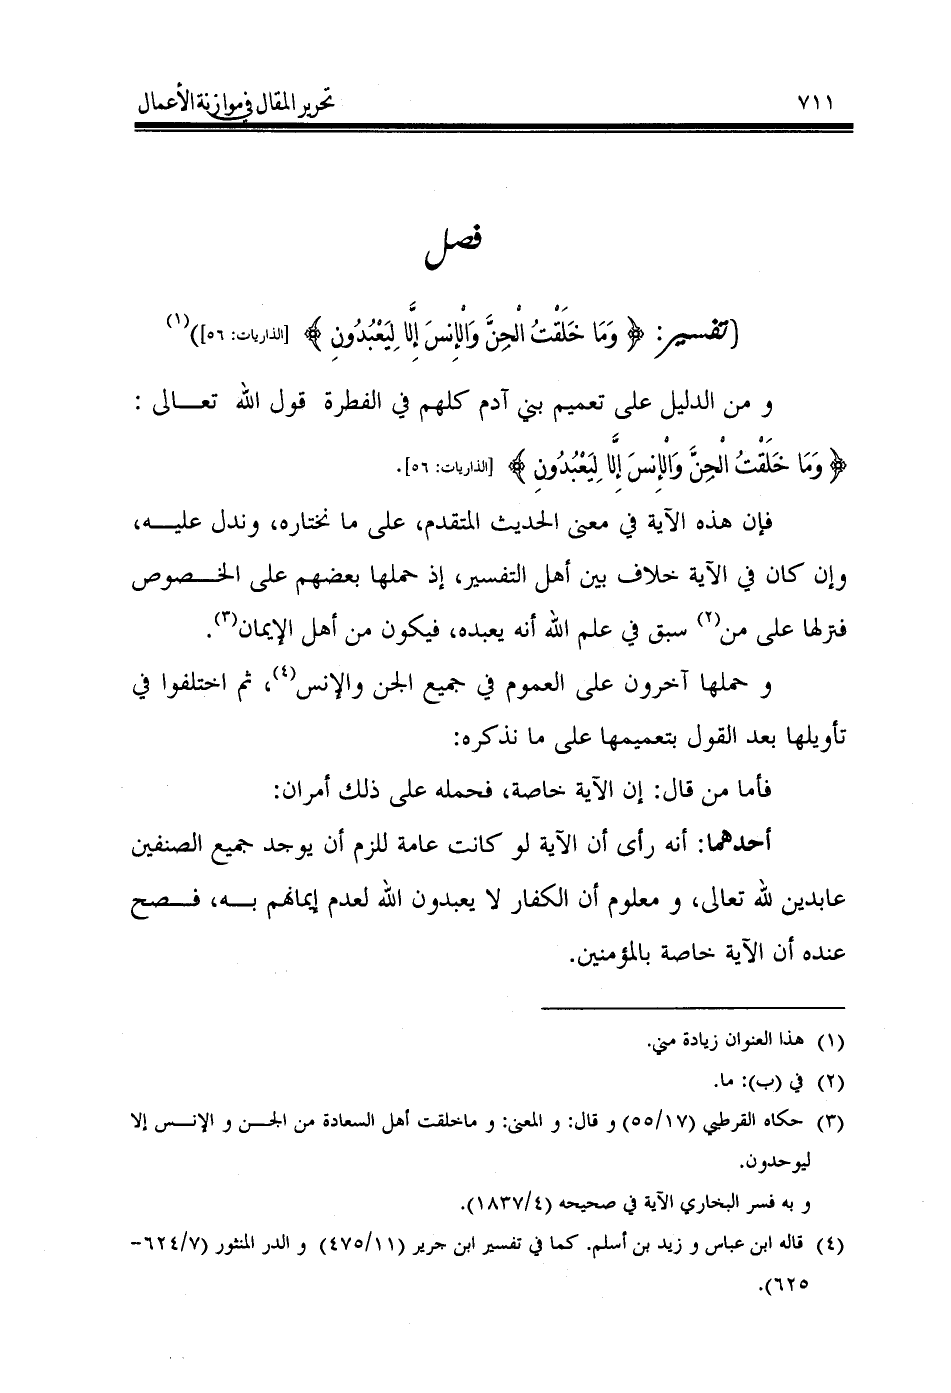 ٧١١ تحرير المقال في موازنة الأعمال
فصل
[تفسير: ﴿ وَمَا خَلَقْتُ الْجِنَّ وَالْإِنسَ إِلَّا لِيَعْبُدُونِ ﴾ [الذاريات: ٥٦])(١)
و من الدليل على تعميم بني آدم كلهم في الفطرة قول الله تعـــالى :
﴿ وَمَا خَلَقْتُ الْجِنَّ وَالْإِنسَ إِلَّا لِيَعْبُدُونِ ﴾ [الذاريات: ٥٦].
فإن هذه الآية في معنى الحديث المتقدم، على ما نختاره، وندل عليـــه،
وإن كان في الآية خلاف بين أهل التفسير، إذ حملها بعضهم على الخـــصوص
فنزلها على من(٢) سبق في علم الله أنه يعبده، فيكون من أهل الإيمان(٣).
و حملها آخرون على العموم في جميع الجن والإنس(٤)، ثم اختلفوا في
تأويلها بعد القول بتعميمها على ما نذكره:
فأما من قال: إن الآية خاصة، فحمله على ذلك أمران:
أحدهما: أنه رأى أن الآية لو كانت عامة للزم أن يوجد جميع الصنفين
عابدين لله تعالى، و معلوم أن الكفار لا يعبدون الله لعدم إيمانهم بـــه، فـــصح
عنده أن الآية خاصة بالمؤمنين.
(١) هذا العنوان زيادة مني.
(٢) في (ب): ما.
(٣) حكاه القرطبي (٥٥/١٧) و قال: و المعنى: و ماخلقت أهل السعادة من الجـــن و الإنـــس إلا
ليوحدون.
و به فسر البخاري الآية في صحيحه (١٨٣٧/٤).
(٤) قاله ابن عباس و زيد بن أسلم. كما في تفسير ابن جرير (٤٧٥/١١) و الدر المنثور (٦٢٤/٧–
٦٢٥).